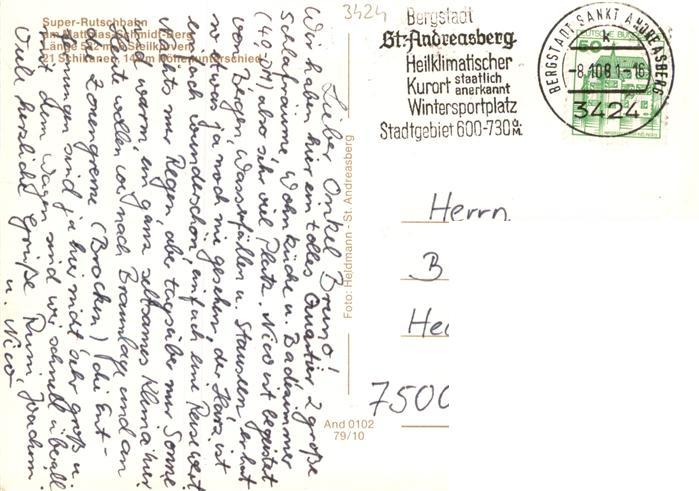 Super-Rutschbahn
am Matthias-Schmidt-Berg
Länge 542 m, Steilkurven
21 Schikanen, 140 m Höhenunterschied
Lieber Onkel Bruno!
Wir haben hier ein tolles Quartier 2 große
Schlafräume, Wohnküche u. Badezimmer
(40,- DM) also sehr viel Platz. Nico ist begeistert
von Bergen, Wasserfällen u. Stauseen, er hat
so etwas ja noch nie gesehen, der Harz ist
einfach wunderschön, einfach eine Reise wert
nachts nur Regen, aber tagsüber nur Sonne
und warm, ein ganz seltsames Klima hier
Heute wollen wir nach Braunlage und an
die Zonengrenze (Brocken) die Ent-
fernungen sind ja hier nicht sehr groß u.
mit dem Wagen sind wir schnell überall
Viele herzliche Grüße Joachim
u. Nico
Foto: Heldmann - St. Andreasberg
And 0102
79/10
3424
Bergstadt
St. Andreasberg
Heilklimatischer
Kurort staatlich anerkannt
Wintersportplatz
Stadtgebiet 600-730 ü.M.
BERGSTADT SANKT ANDREASBERG
k
-8.10.81-16
3424
DEUTSCHE BUNDESPOST
50
Herrn
B
He
7500